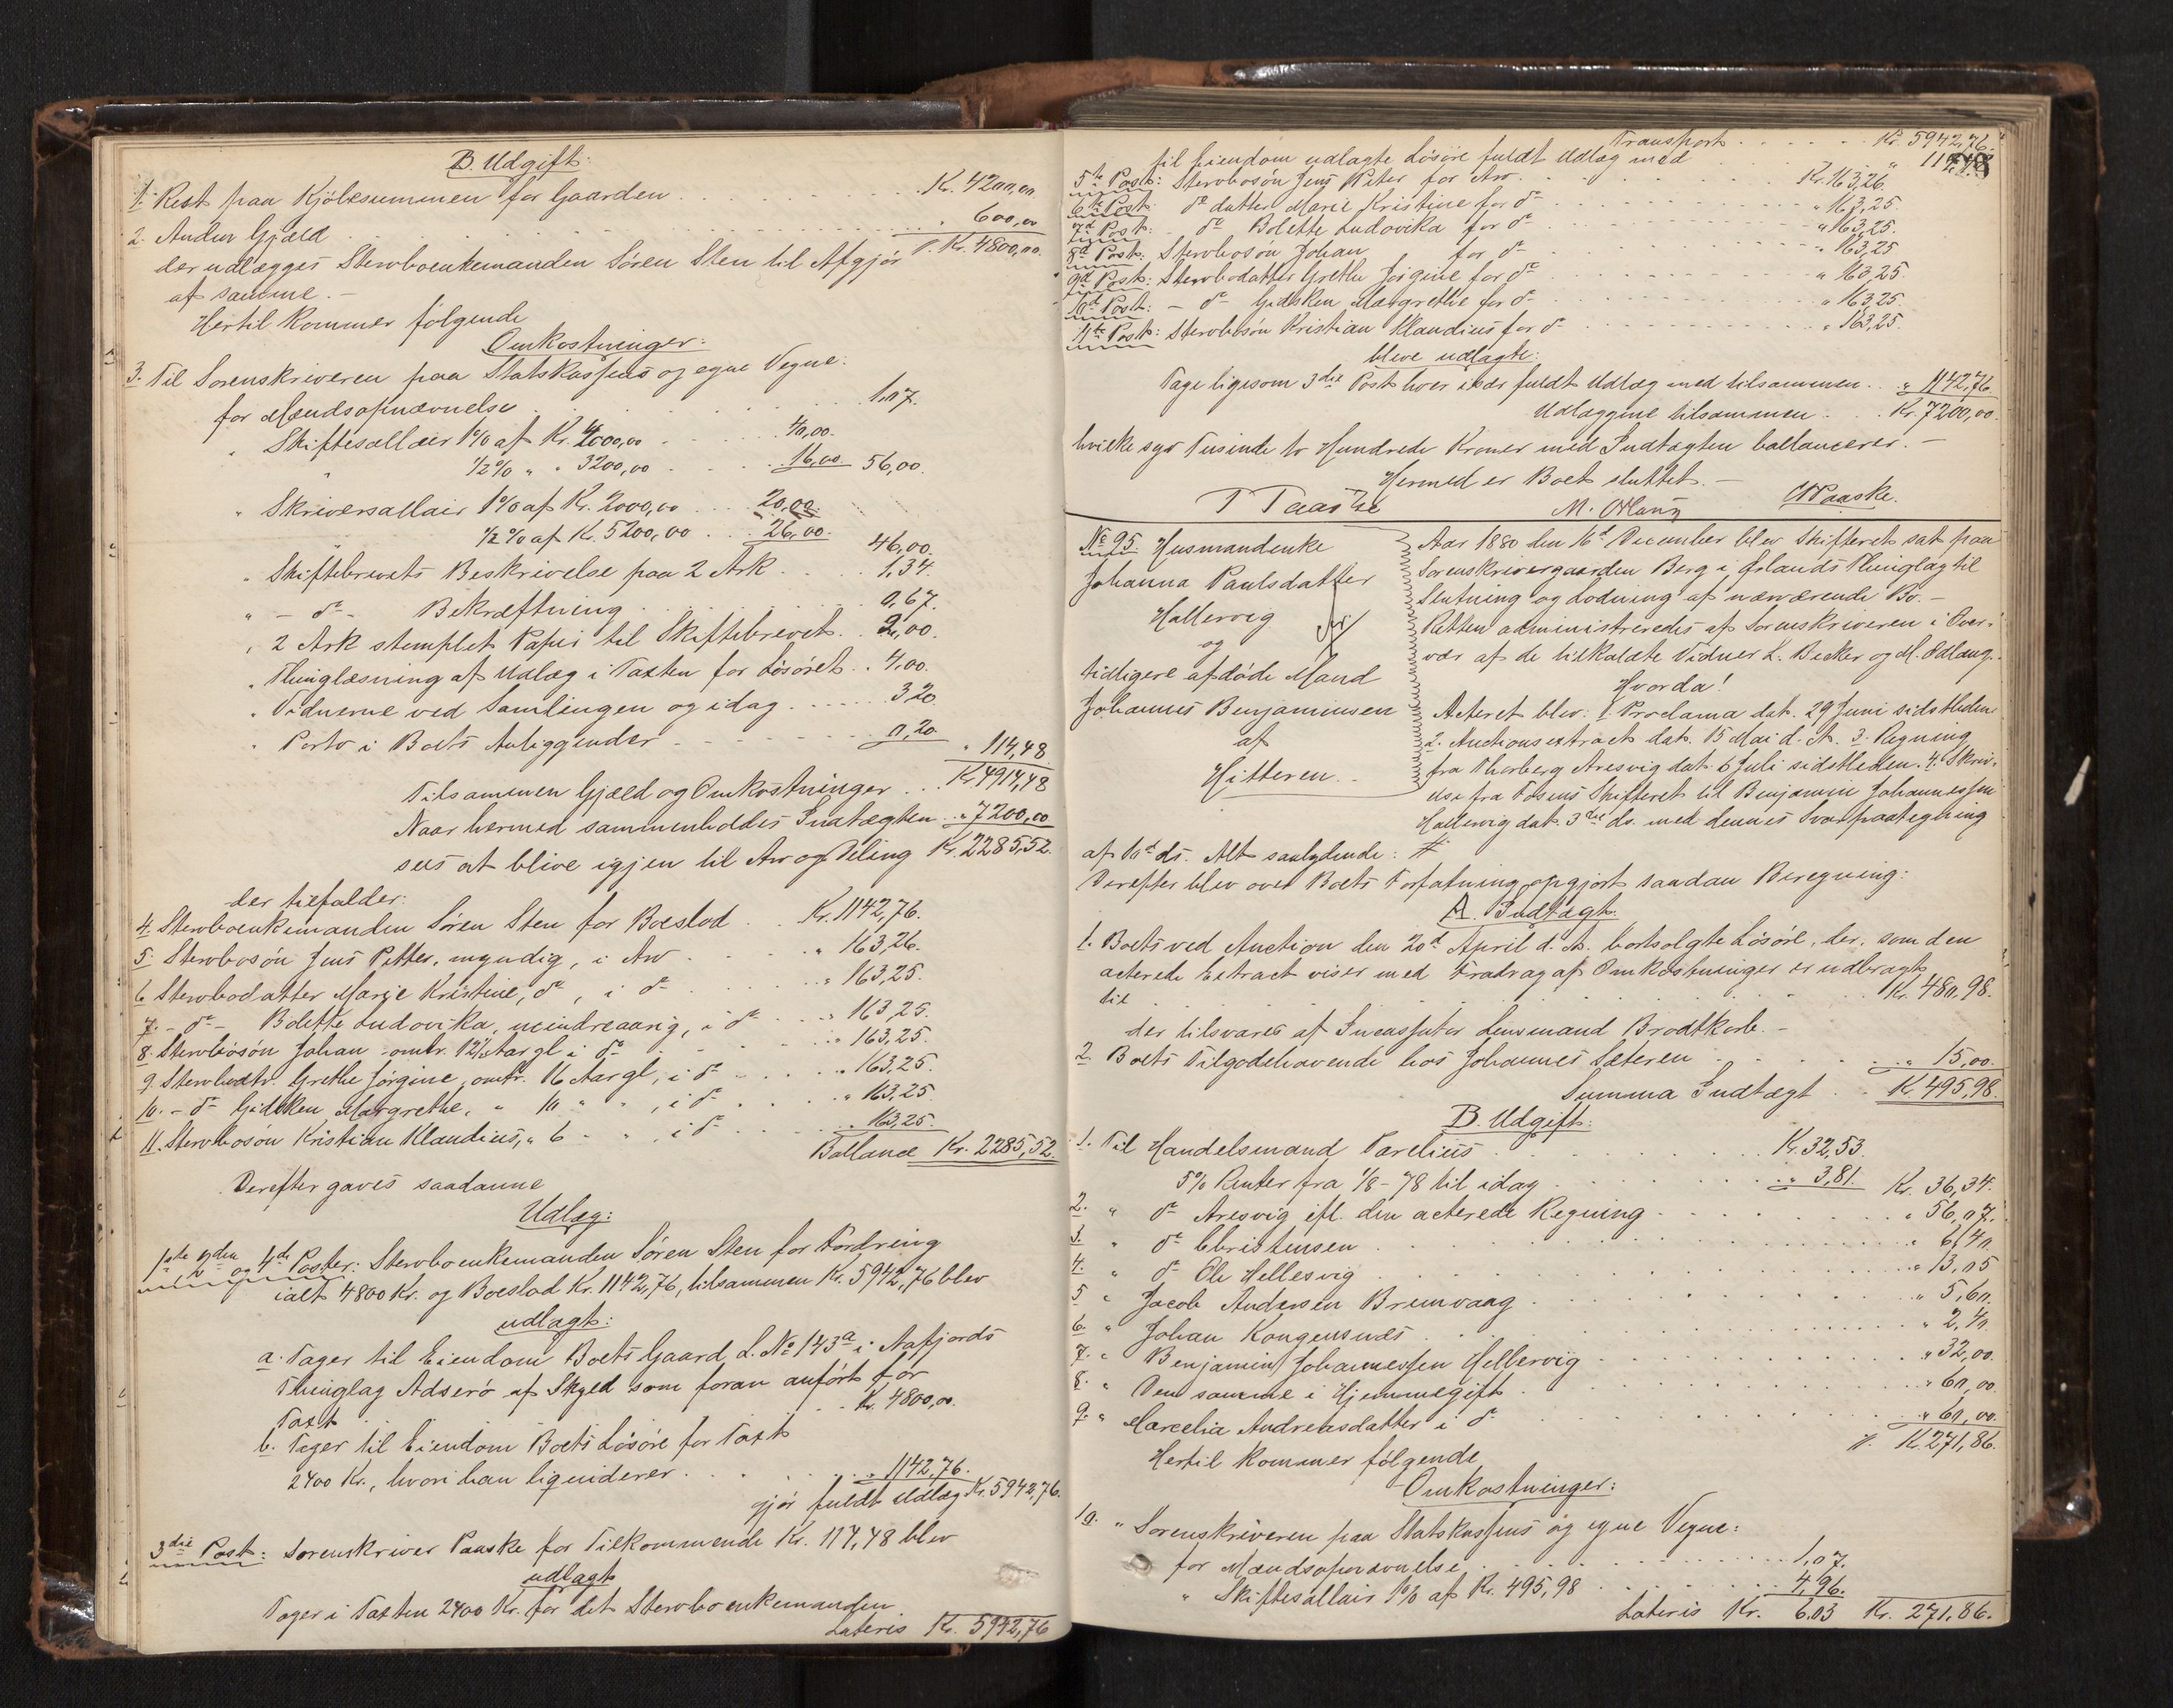 B. Udgift:
1. Rest paa Kjöbesummen for Gaarden . . . Kr. 4200,00.
2. Anden Gjæld . . . " 600,00
T. Kr. 4800,00.
der udlægges Stervboenkemanden Sören Sten til Afgjör
af samme. –
Hertil kommer følgende
Omkostninger:
3. Til Sorenskriveren paa Statskassens og egne Vegne:
for Mændsopnævnelse . . . 1,07.
" Skiftesallær 1% af Kr. 4000,00 . . . 40,00.
" ½% " " 3200,00 . . . 16,00. 56,00.
" Skriversallair 1% af Kr. 2000,00 . . . 20,00.
" ½% af K. 5200,00 . . . 26,00.
46,00.
" Skiftebrevets Beskrivelse paa 2 Ark . . . 1,34.
" – do – Bekræftning . . . 0,67.
" 2 Ark stemplet Papir til Skiftebrevet . . 2,00.
" Thinglæsning af Udlæg i Taxten for Løsöret . . 4,00.
" Vidnerne ved Samlingen og idag . . . 3,20.
" Porto i Boets Anliggender . . . 0,20.
" 114,48.
Tilsammen Gjæld og Omkostninger . . Kr. 4914,48
Naar hermed sammenholdes Indtægten . . " 7200,00
sees at blive igjen til Arv og Deling Kr. 2285,52.
der tilfalder:
4. Stervboenkemanden Sören Sten for Boeslod . . Kr. 1142,76.
5. Stervbosön Jens Petter, myndig, i Arv . . . " 163,26.
6 Stervbodatter Marie Kristine, do, i do . . . " 163,25.
7. – do – Bolette Ludovika, mindreaarig, i do . . . " 163,25.
8. Stervbosön Johan omtr. 12½ Aar gl i do . . . " 163,25.
9. Stervbodtr. Grethe Jörgine, omtr. 16 Aar gl, i do . . . " 163,25.
10. – do – Gidsken Margrethe, " 10 " " , i do . . . " 163,25.
11. Stervbosön Kristian Klandius, " 6 " " , i do . . . " 163,25.
Ballance Kr. 2285,52.
Derefter gaves saadanne
Udlæg:
1ste 2den og 4de Poster: Stervboenkemanden Sören Sten for Fordring
ialt 4800 Kr. og Boeslod Kr. 1142,76, tilsammen Kr. 5942,76 blev
udlagt:
a. Tager til Eiendom Boets Gaard, L. No 143a i Aafjords
Thinglag Adserö af Skyld som foran anført for
Taxt . . . Kr. 4800,00.
b. Tager til Eiendom Boets Løsöre for Taxt
2400 Kr., hvori han liqviderer . . . " 1142,76.
gjör fuldt Udlæg Kr. 5942,76.
3die Post: Sorenskriver Paaske for Tilkommende Kr. 114,48 blev
udlagt
Tager i Taxten 2400 Kr. for det Stervboenkemanden
Lateris Kr. 5942,76
Transport . . . Kr. 5942,76.
til Eiendom udlagte Løsöre fuldt Udlæg med . . . " 114,48
5te Post: Stervbosön Jens Peter for Arv . . . Kr. 163,26.
6te Post: do datter Marie Kristine for do . . . " 163,25.
7de Post: – do Bolette Ludovika for do . . . " 163,25.
8de Post: Stervbosön Johan for do . . . " 163,25
9de Post: Stervbodatter Grethe Jörgine for do . . . " 163,25.
10de Post: – do – Gidsken Margrethe for do . . . " 163,25.
11te Post: Stervbosön Kristian Klandius for do . . . " 163,25.
bleve udlagte:
Tage ligesom 3die Post hver især fuldt Udlæg med tilsammen . . " 1142,76
Udlæggene tilsammen . . Kr. 7200,00.
hvilke syv Tusinde to Hundrede Kroner med Indtægten ballancerer. –
Hermed er Boet sluttet. –
M. Odlaug Paaske.
No 95. Husmandenke
Johanna Paulsdatter
Hallervig
og
tidligere afdöde Mand
Johannes Benjaminsen
af
Hitteren. –
Aar 1880 den 16de December blev Skifteret sat paa
Sorenskrivergaarden Berg i Ørlands Thinglag til
Slutning og Lodning af nærværende Bo. –
Retten administreredes af Sorenskriveren i Over-
vær af de tilkaldte Vidner L. Becker og M. Odlaug. –
Hvorda!
Acteret blev: 1. Proclama dat. 29 Juni sidstleden
2. Auctionsextract dat. 15 Mai d. A. 3. Regning
fra Thorberg Aresvig dat. 6 Juli sidstleden. 4. Skriv-
else fra Fosens Skifteret til Benjamin Johannessen
Hallervig dat. 3die ds. med dennes Svarpaategning
af 10de ds. Alt saalydende: #
Derefter blev over Boets Forfatning opgjort saadan Beregning:
A. Indtægt.
1. Boets ved Auction den 20de April d. A. bortsolgte Løsöre, der, som den
acterede Extract viser med Fradrag af Omkostninger er udbragt
til . . . Kr. 480,98.
der tilsvares af Incassator Lensmand Brodtkorb. –
2. Boets Tilgodehavende hos Johannes Sæteren . . . " 15,00.
Summa Indtægt . . K. 495,98.
B. Udgift:
1. Til Handelsmand Parelius . . . Kr. 32,53.
5% Renter fra 1/8 – 78 til idag . . . " 3,81. Kr. 36,34.
2. " do Aresvig ifl. den acterede Regning . . . " 56,07.
3. " do Christensen . . . " 6,40.
4. " do Ole Hellesvig . . . " 13,05
5 " Jacob Andersen Bremvaag . . . " 5,60.
6. " Johan Kongensnæs . . . " 2,40
7. " Benjamin Johannessen Hellervig . . . " 32,00.
8. " Den samme i Hjemmegift . . . " 60,00.
9. " Marcelia Andreasdatter i do . . . " 60,00.
T. K. 271,86.
Hertil kommer følgende
Omkostninger:
10. " Sorenskriveren paa Statskassens og egne Vegne:
for Mændsopnævnelse . . . 1,07.
" Skiftesallair 1% af Kr. 495,98 . . . 4,96.
Lateris Kr. 6,03 Kr. 271,86.